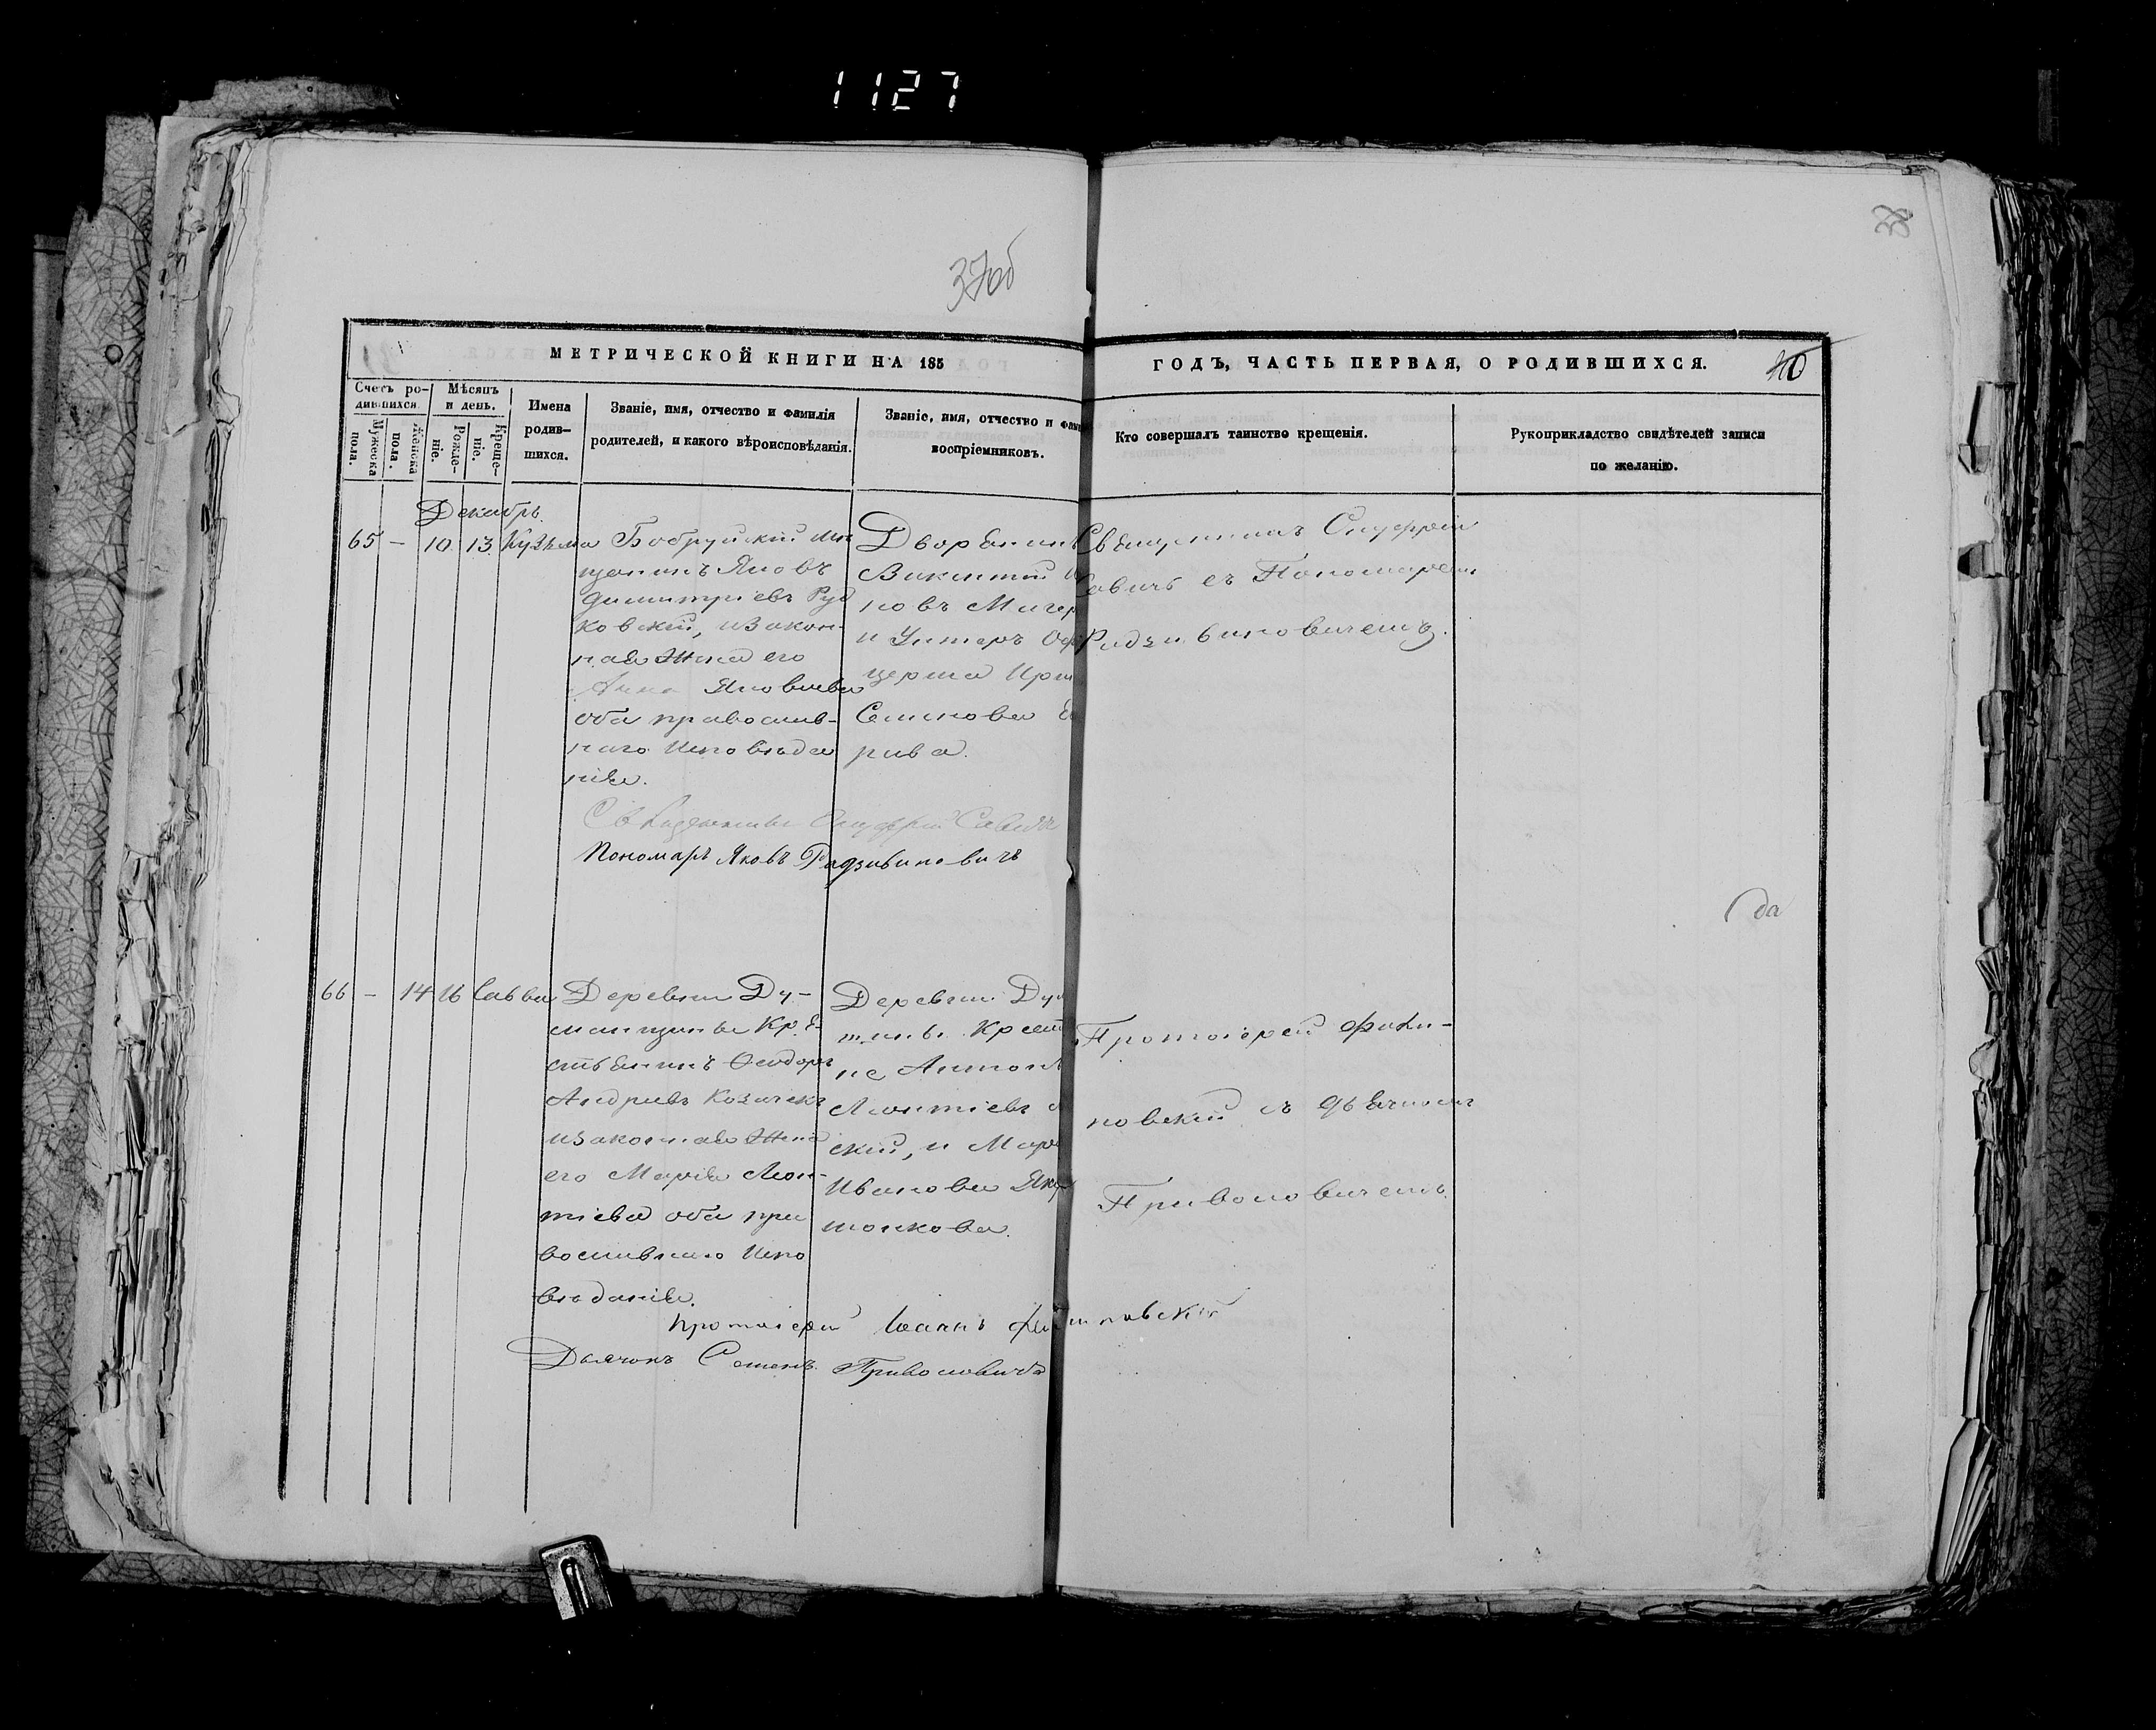 1127
37об
38
МЕТРИЧЕСКОЙ КНИГИ НА 185
ГОДЪ, ЧАСТЬ ПЕРВАЯ, О РОДИВШИХСЯ.
Счетъ ро-
дившихся.
Мужеска
пола.
Женска
пола.
Мѣсяцъ
и день.
Рожде-
ніе.
Креще-
ніе.
Имена
родив-
шихся.
Званіе, имя, отчество и фамилія
родителей, и какого вѣроисповѣданія.
Званіе, имя, отчество и фам
воспріемниковъ.
Кто совершалъ таинство крещенія.
Рукоприкладство свидѣтелей записи
по желанію.
Декабрь.
65 – 10. 13. Кузьма
Бобруйскій мѣ
щанинъ Яковъ
Димитріевъ Руд
ковскій, изакон-
ная Жена его
Анна Яковлева
оба православ-
наго Исповѣда
нія.
Дворянинъ
Викентій
новъ
и Унтеръ Оф
церша Ири
Семенова
рива.
Священникъ Онуфрій
Савичъ съ Пономаремъ
Радзивиновичемъ.
Священникъ Онуфрій Савичъ
Пономарь Яковъ Радзивиновичъ
да
66 – 14 16 Савва
Деревни Ду-
манщины Кр. Е-
стьянинъ Феодоръ
Андреевъ Козачекъ
изаконная Жена
его Марія Леон-
тіева оба пра
вославнаго Испо
вѣданія.
Деревни
Крест
не Антонъ
Леонтіевъ
скій, и Мар
Иванова
шонкова.
Протоіерей
новскій съ дьячкомъ
Приволовичемъ.
Протоіерей Іоаннъ
Дьячокъ Семенъ Приволовичъ